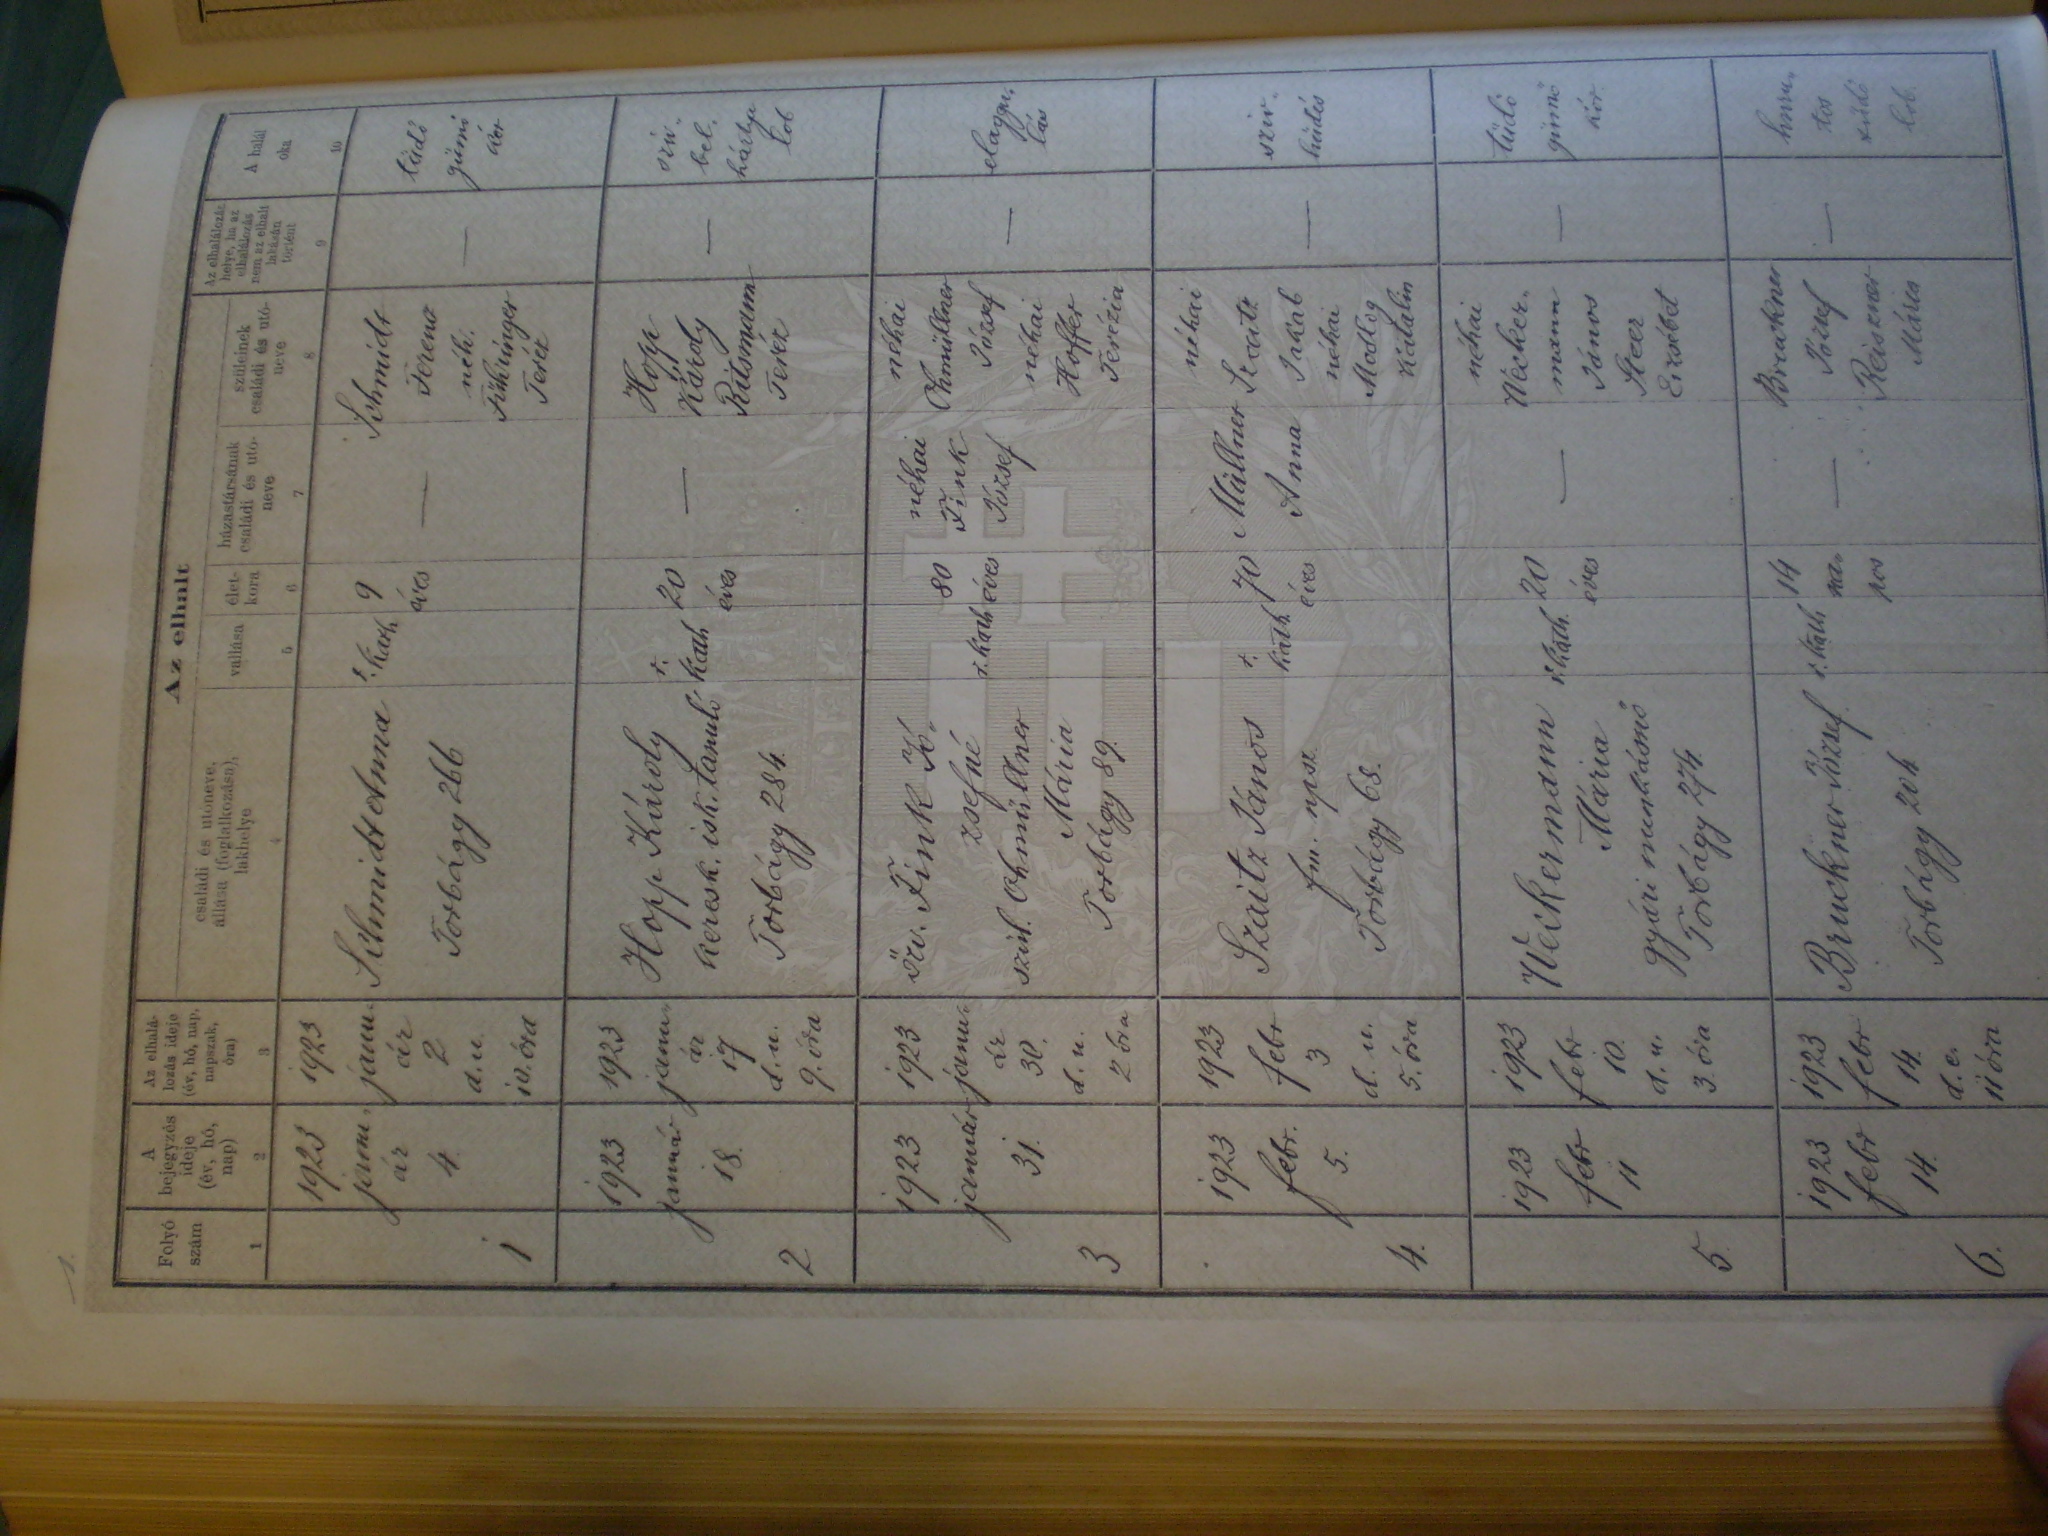 1.
Az elhalt
Folyó
szám
A
bejegyzés
ideje
(év, hó,
nap)
Az elhalá-
lozás ideje
(év, hó, nap,
napszak,
óra)
családi és utóneve,
állása (foglalkozása),
lakhelye
vallása
élet-
kora
házastársának
családi és utó-
neve
szüleinek
családi és utó-
neve
Az elhalálozás
helye, ha az
elhalálozás
nem az elhalt
lakásán
történt
A halál
oka
1
2
3
4
5
6
7
8
9
10
1
1923
janu-
ár
4.
1923
janu-
ár
2
d.u.
10. óra
Schmidt Anna
Torbágy 266
r. kath.
9
éves
—
Schmidt
Ferenc
néh.
Führinger
Teréz
—
tüdő
gümő
kór
2
1923
január
18.
1923
janu-
ár
17
d.u.
9. óra
Hopp Károly
keresk. isk. tanuló
Torbágy 284.
r.
kath
20
éves
—
Hopp
Károly
Ritsmann
Teréz
—
szív-
bel-
hártya
lob
3
1923
január
31.
1923
janu-
ár
30.
d.u.
2 óra
özv. Fink Jó-
zsefné
szül. Ohmüllner
Mária
Torbágy 89.
r. kath
80
éves
néhai
Fink
József
néhai
Ohmüllner
József
néhai
Hoffer
Terézia
—
elaggu-
lás
4.
1923
febr.
5.
1923
febr
3
d.u.
5. óra
Szaitz János
fm. npsz.
Torbágy 68.
r.
kath
70
éves
Müllner
Anna
néhai
Szaitz
Jakab
néhai
Katalin
—
szív-
hüdés
5.
1923
febr
11
1923
febr
10.
d.u.
3. óra
Weckermann
Mária
gyári munkásnő
Torbágy 274
r. kath.
20
éves
—
néhai
Wecker-
mann
János
Erzsébet
—
tüdő
gümő
kór.
6.
1923
febr
14.
1923
febr
14.
d.e.
11 óra
Bruckner József
Torbágy 204
r. kath
14
na-
pos
—
Bruckner
József
Reiszner
Mária
—
huru-
tos
tüdő
lob.